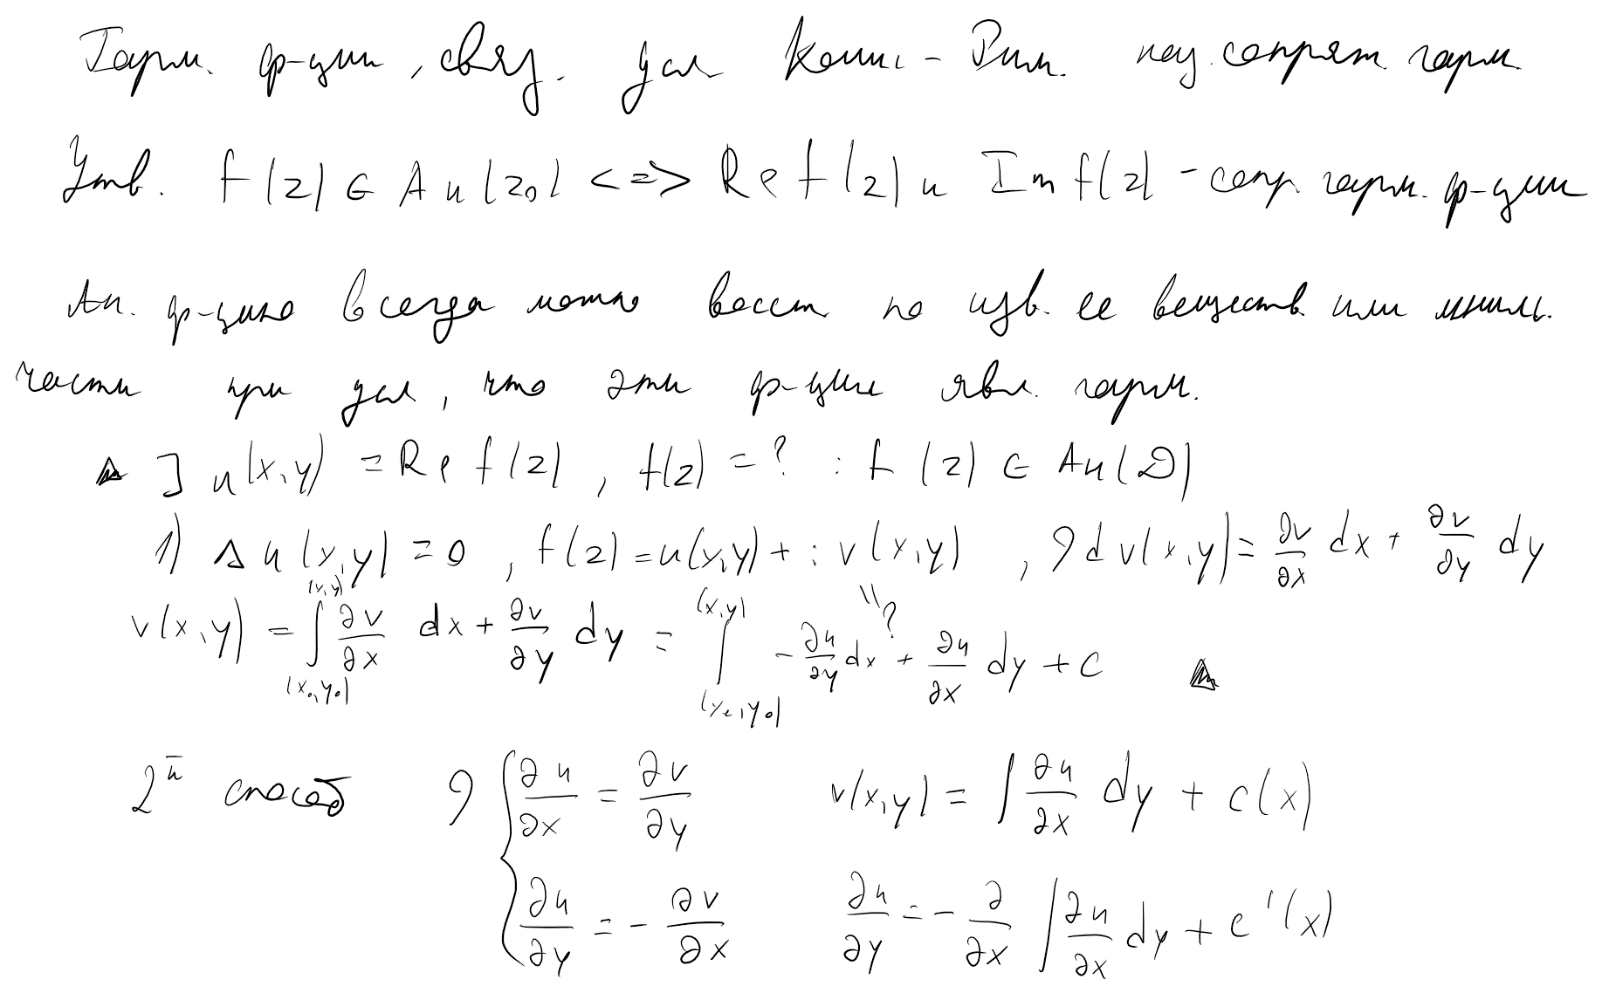 Гарм. ф-ции, связ. усл Коши - Рим. наз. сопряж. гарм.
Утв. f(z) ∈ An(z₀) <=> Re f(z) и Im f(z) - сопр. гарм. ф-ции
Ан. ф-цию всегда можно восст по изв. ее веществ или мним.
части при усл, что эти ф-ции явл. гарм.
▲ ] u(x,y) = Re f(z), f(z) = ? : f(z) ∈ An(D)
1) Δu(x,y) = 0, f(z) = u(x,y) + i v(x,y), ? dv(x,y) = ∂v/∂x dx + ∂v/∂y dy
v(x,y) = ∫_(x₀,y₀)^(x,y) ∂v/∂x dx + ∂v/∂y dy = ∫_(x₀,y₀)^(x,y) -∂u/∂y dx + ∂u/∂x dy + c ▲
"?
2й способ ? { ∂u/∂x = ∂v/∂y v(x,y) = ∫ ∂u/∂x dy + c(x)
∂u/∂y = - ∂v/∂x ∂u/∂y = - ∂/∂x ∫ ∂u/∂x dy + c'(x)